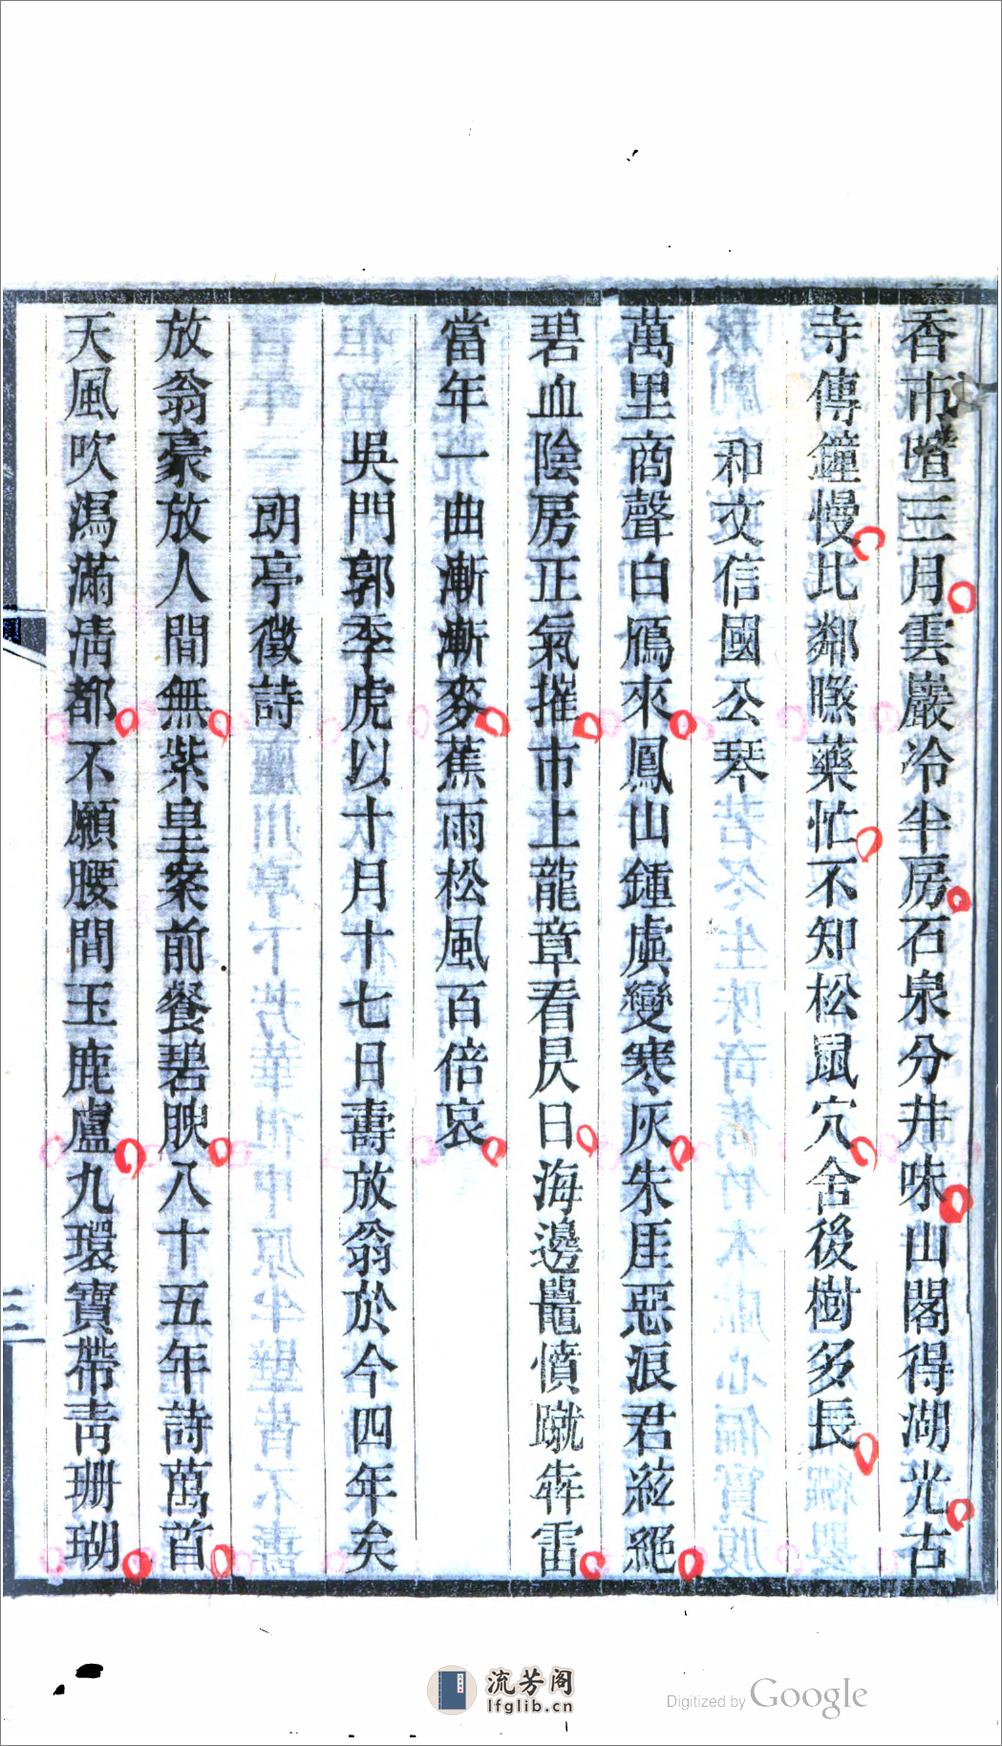 香市喧三月雲巖冷半房石泉分井味山閣得湖光古
寺傳鐘慢比鄰曣藥忙不知松鼠穴舍後樹多長
和文信國公琴
萬里商聲白鴈來鳳山鍾虡變寒灰朱厓惡浪君絃絕
碧血陰房正氣摧市上龍章看昃日海邊鼉憤蹴犇雷
當年一曲漸漸麥蕉雨松風百倍哀
吳門郭季虎以十月十七日壽放翁於今四年矣
朗亭徵詩
放翁豪放人間無紫皇案前餐碧腴八十五年詩萬首
天風吹瀉滿淸都不願腰間玉鹿盧九環寶帶靑珊瑚
三
流芳阁
lfglib.cn
Digitized by Google